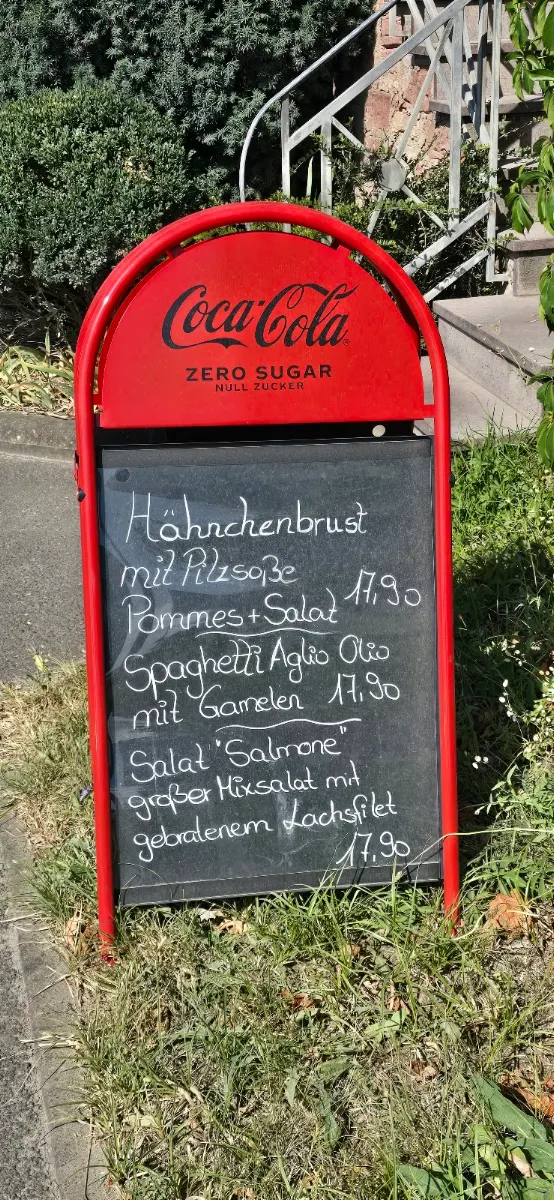 Coca-Cola
ZERO SUGAR
NULL ZUCKER
Hähnchenbrust
mit Pilzsoße
Pommes + Salat 17,90
Spaghetti Aglio Olio
mit Gamelen 17,90
Salat "Salmone"
großer Mixsalat mit
gebratenem Lachsfilet
17,90